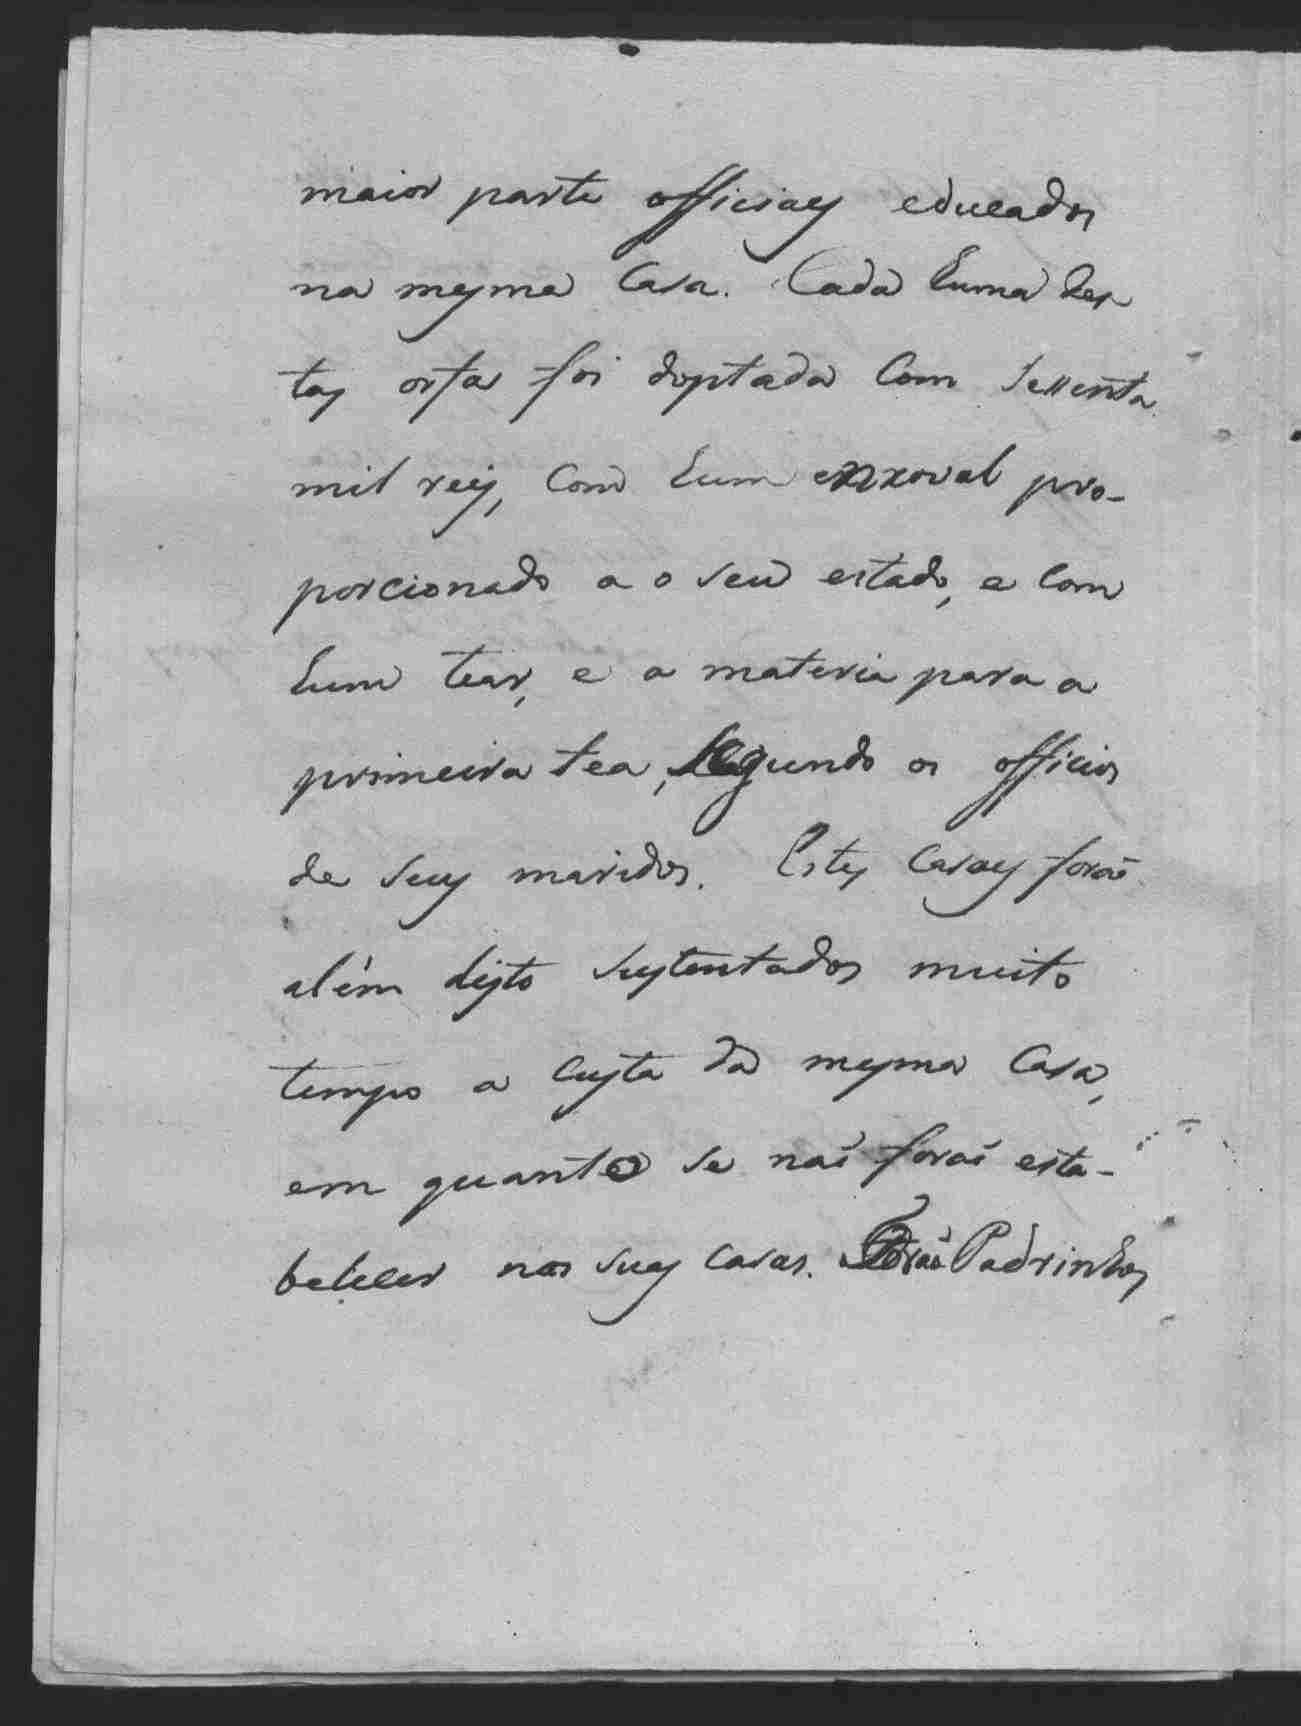 maior parte officiaes educados
na mesma Casa. Cada huma des
tas orfãs foi doptada com Sessenta
mil reis, com hum enxoval pro-
porcionado a o seu estado, e com
hum tear, e a materia para a
primeira tea, segundo os officios
de seus maridos. Estes casaes forão
além disto sustentados muito
tempo a custa da mesma Casa,
em quanto se não forão esta-
belecer nas suas casas. Forão Padrinhos